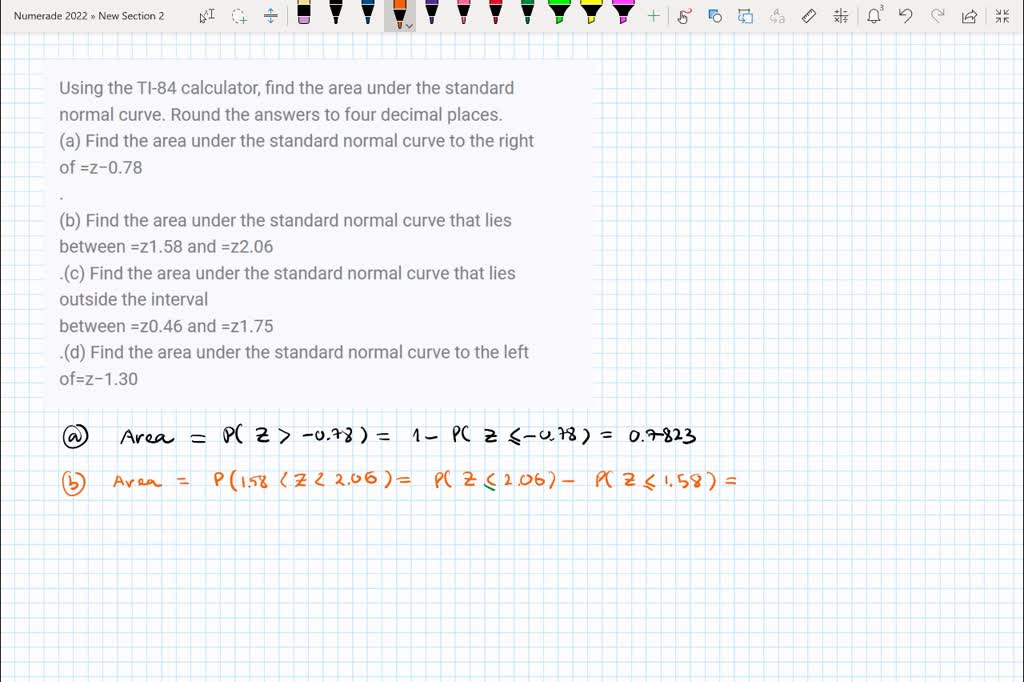 Numerade 2022 » New Section 2
3
Using the TI-84 calculator, find the area under the standard
normal curve. Round the answers to four decimal places.
(a) Find the area under the standard normal curve to the right
of =z−0.78
.
(b) Find the area under the standard normal curve that lies
between =z1.58 and =z2.06
.(c) Find the area under the standard normal curve that lies
outside the interval
between =z0.46 and =z1.75
.(d) Find the area under the standard normal curve to the left
of=z−1.30
ⓐ Area = P( Z > -0.78) = 1 - P( Z ≤ -0.78) = 0.7823
ⓑ Area = P(1.58 < Z < 2.06) = P( Z ≤ 2.06) - P( Z ≤ 1.58) =